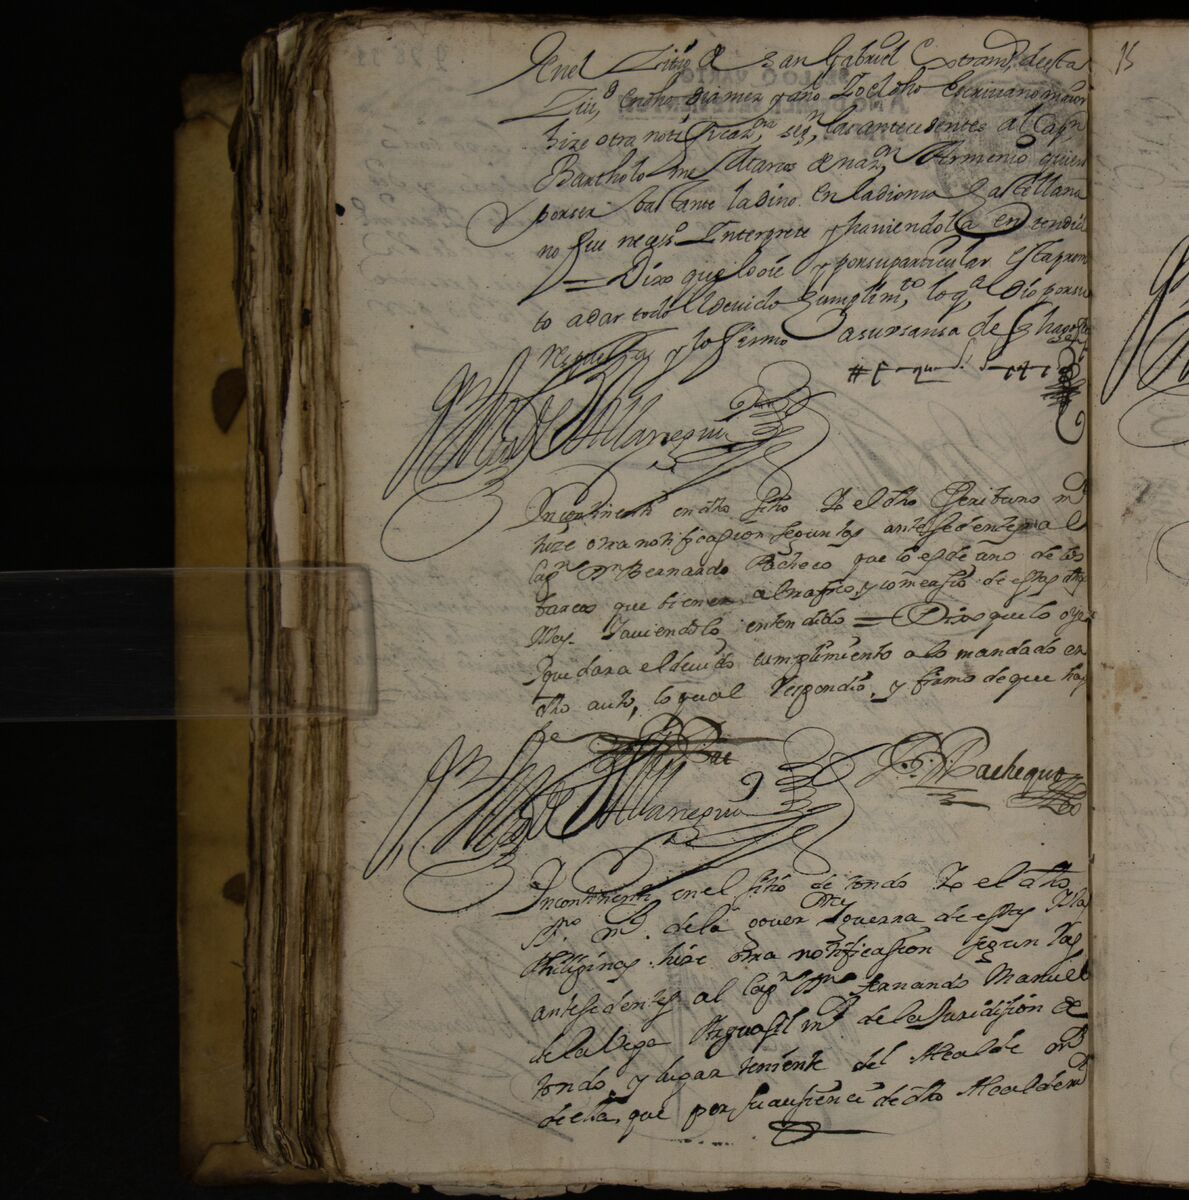 En el Sitio de San Gabriel Extram.s desta
Ciu.d en dho dia mes y año Yo el dho Escriuano maior
hize otra notificaz.on seg.n las antecedentes al Cap.n
Bartholome de naz.on Armenio quien
por ser bastante ladino en la dioma Castellana
no fue neces.o Interprete y hauiendola entendido
= Dixo que lo oie y por su particular esta prom
to a dar todo el deuido Cumplim.to lo q.e dio por su
respuesta y lo firmo
Incontinenti en dho sitio Yo el dho Escribano m.r
hize otra notificasion segun las antesedentes al
Cap.n Dn Bernardo Pacheco que lo es de uno de los
barcos que tienen al trafico, y comersio de estas dhas
Yslas. Y auiendolo entendido = Dixo que lo oye
Y que dara el deuido cumplimiento a lo mandado en
dho auto, lo qual respondio, y firmo de que doy
fe
Pachequo
Incontinenti en el sitio de tondo Yo el dho
ss.no m.r de la gouer.on Y guerra de estas Yslas
Philipinas hize otra notificasion segun las
antesedentes al Cap.n Dn Fernando Manuel
de la Vega Alguasil m.r de la Juridision de
tondo y lugar teniente del Alcalde m.r
de ella, que por su ausiencia de dho Alcalde m.r